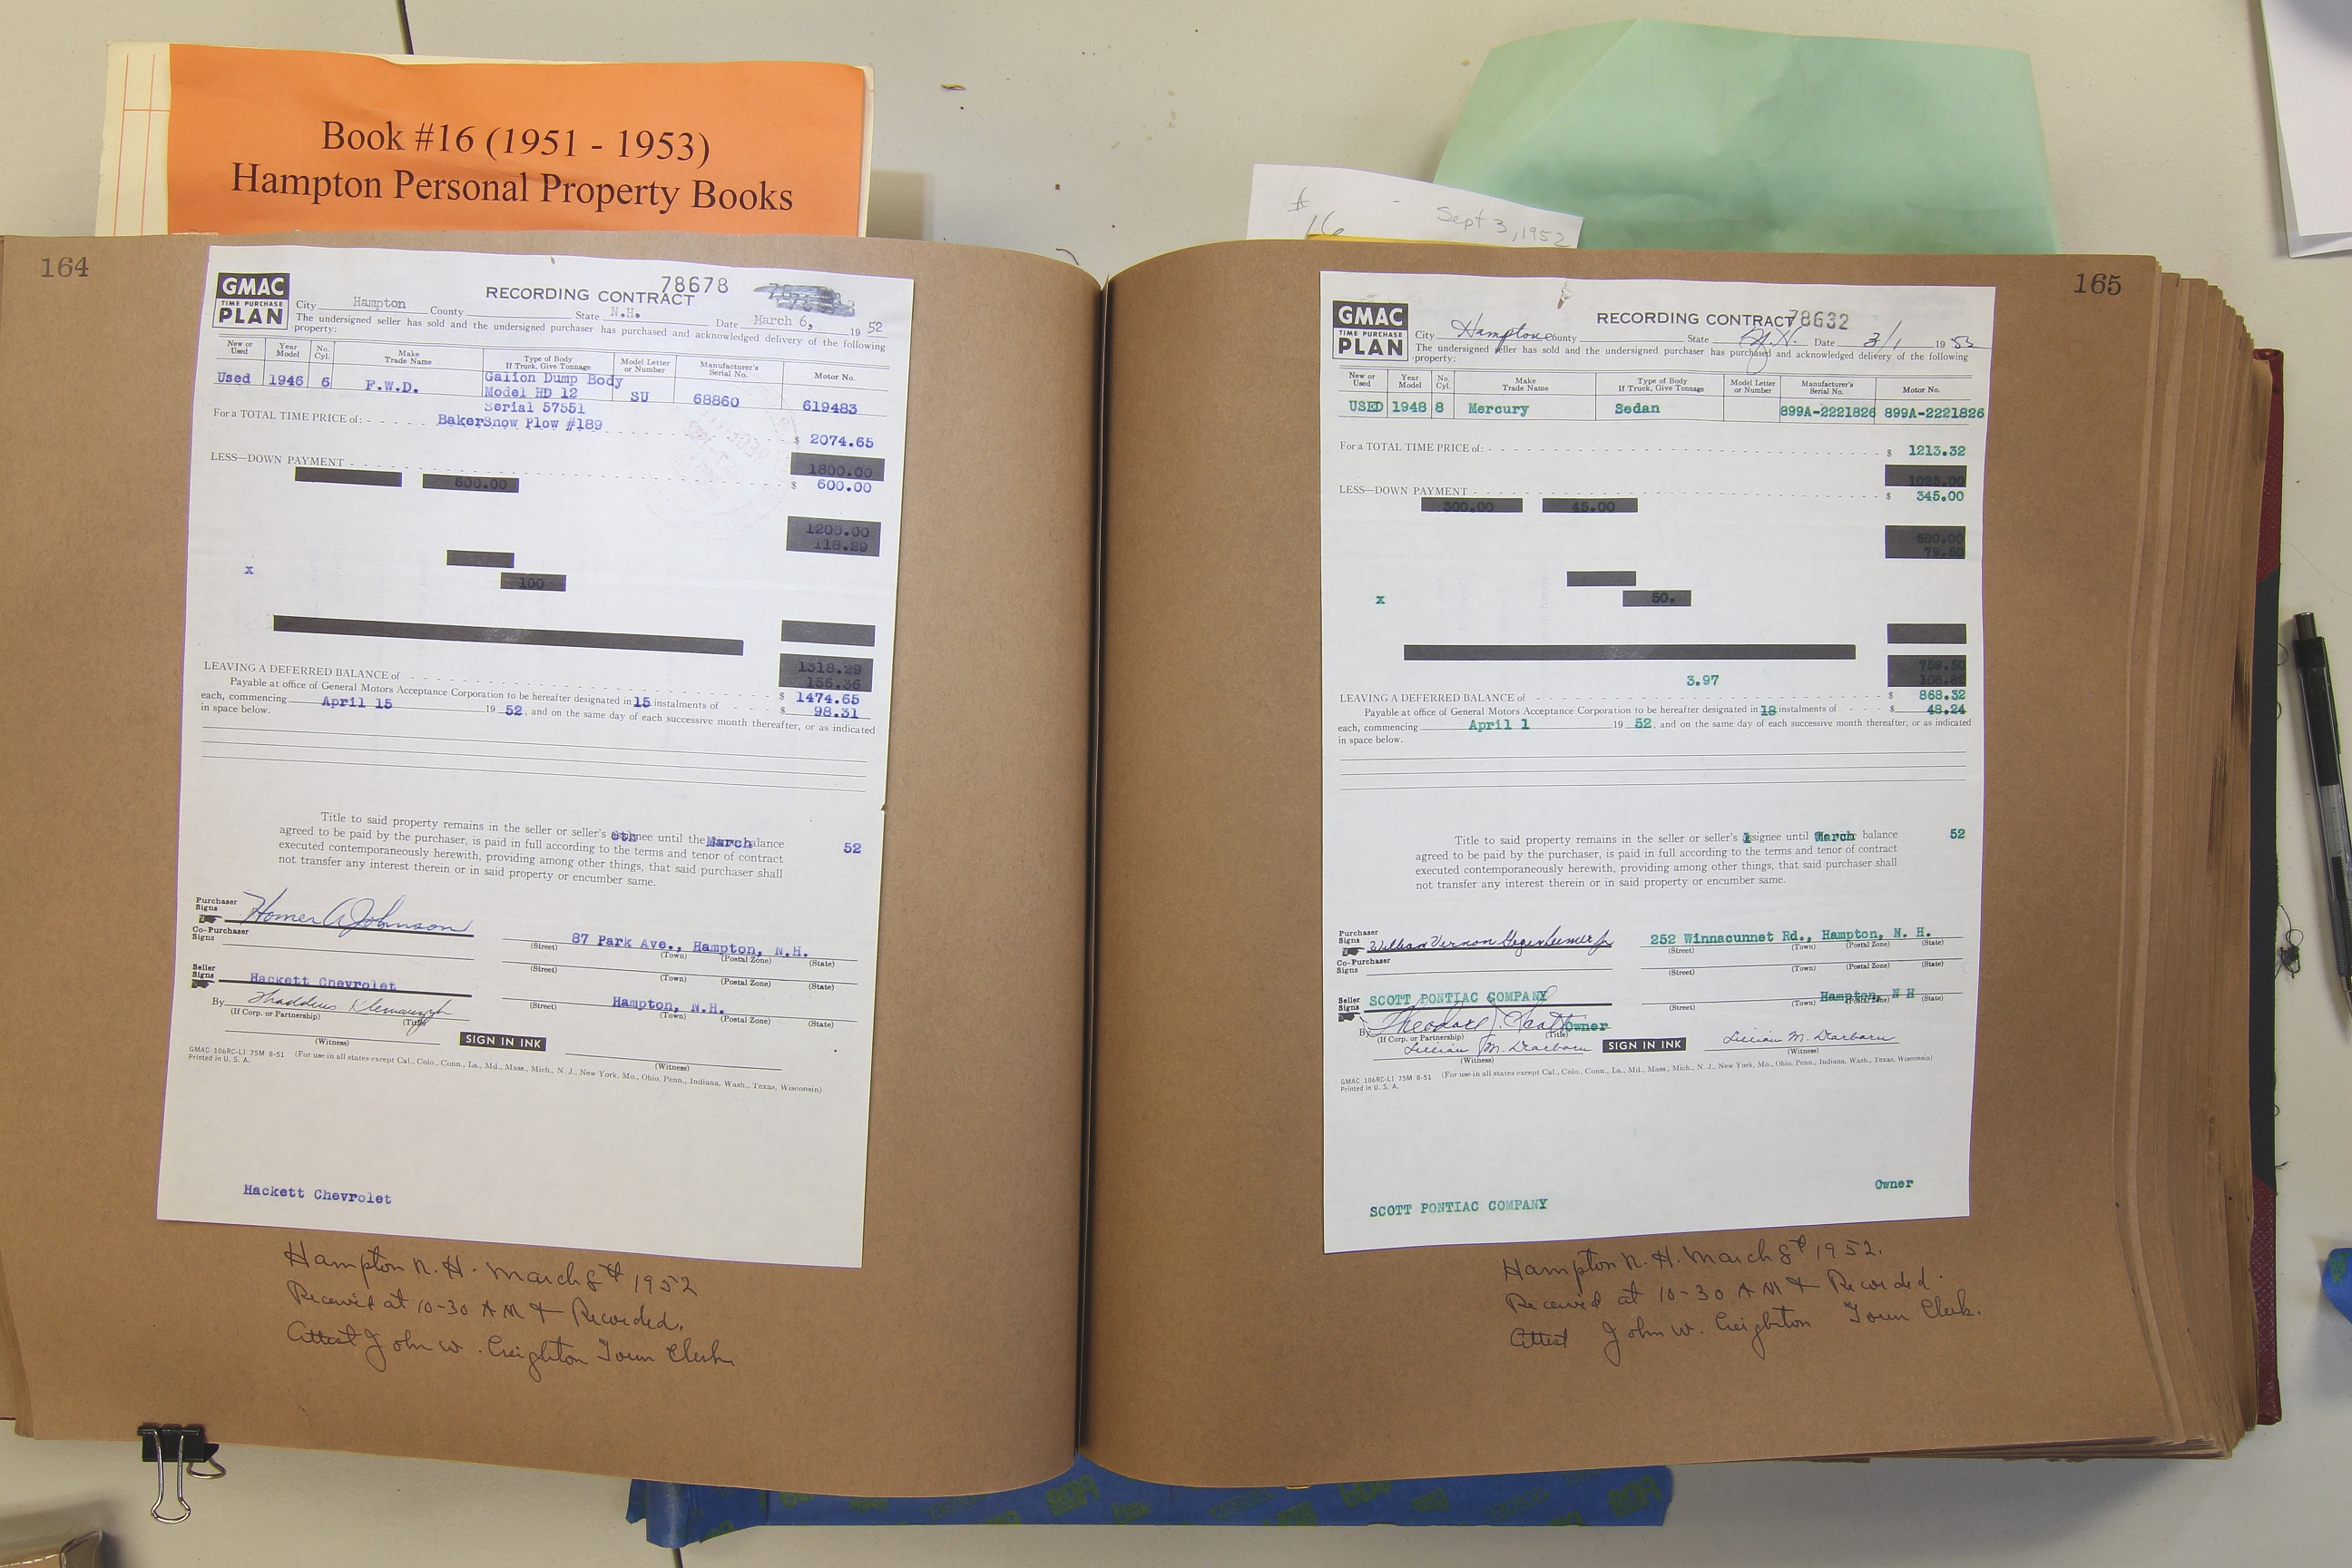 Book #16 (1951 - 1953)
Hampton Personal Property Books
# - Sept 3, 1952
16
164
GMAC
TIME PURCHASE
PLAN
RECORDING CONTRACT
78678
City Hampton County State N.H. Date March 6, 19 52
The undersigned seller has sold and the undersigned purchaser has purchased and acknowledged delivery of the following
property:
New or Used Year Model No. Cyl. Make Trade Name Type of Body If Truck, Give Tonnage Model Letter or Number Manufacturer's Serial No. Motor No.
Used 1946 6 F.W.D. Galion Dump Body SU 68860 619483
Model HD 12
Serial 57551
For a TOTAL TIME PRICE of: Baker Snow Plow #189 $ 2074.65
1800.00
LESS—DOWN PAYMENT $ 600.00
600.00
1200.00
118.29
x
100
1318.29
156.36
LEAVING A DEFERRED BALANCE of $ 1474.65
Payable at office of General Motors Acceptance Corporation to be hereafter designated in 15 instalments of $ 98.31
each, commencing April 15 19 52, and on the same day of each successive month thereafter, or as indicated
in space below.
Title to said property remains in the seller or seller's 6th nee until the March alance 52
agreed to be paid by the purchaser, is paid in full according to the terms and tenor of contract
executed contemporaneously herewith, providing among other things, that said purchaser shall
not transfer any interest therein or in said property or encumber same.
Purchaser Signs Homer A Johnson 87 Park Ave., Hampton, N.H.
(Street) (Town) (Postal Zone) (State)
Co-Purchaser Signs
(Street) (Town) (Postal Zone) (State)
Seller Signs Hackett Chevrolet Hampton, N.H.
(Street) (Town) (Postal Zone) (State)
By Thaddeus
(If Corp. or Partnership) (Title)
SIGN IN INK
(Witness) (Witness)
GMAC 106RC-LI 75M 8-51 (For use in all states except Cal., Colo., Conn., La., Md., Mass., Mich., N. J., New York, Mo., Ohio, Penn., Indiana, Wash., Texas, Wisconsin)
Printed in U. S. A.
Hackett Chevrolet
Hampton N. H. March 8th 1952
Received at 10-30 AM & Recorded.
Attest John W. Creighton Town Clerk
165
GMAC
TIME PURCHASE
PLAN
RECORDING CONTRACT
78632
City Hampton County State N.H. Date 3/1 19 52
The undersigned seller has sold and the undersigned purchaser has purchased and acknowledged delivery of the following
property:
New or Used Year Model No. Cyl. Make Trade Name Type of Body If Truck, Give Tonnage Model Letter or Number Manufacturer's Serial No. Motor No.
USED 1948 8 Mercury Sedan 899A-2221826 899A-2221826
For a TOTAL TIME PRICE of: $ 1213.32
1025.00
LESS—DOWN PAYMENT $ 345.00
300.00 45.00
680.00
79.50
x
50.
759.50
3.97 108.82
LEAVING A DEFERRED BALANCE of $ 868.32
Payable at office of General Motors Acceptance Corporation to be hereafter designated in 18 instalments of $ 48.24
each, commencing April 1 19 52, and on the same day of each successive month thereafter, or as indicated
in space below.
Title to said property remains in the seller or seller's 1 ssignee until March balance 52
agreed to be paid by the purchaser, is paid in full according to the terms and tenor of contract
executed contemporaneously herewith, providing among other things, that said purchaser shall
not transfer any interest therein or in said property or encumber same.
Purchaser Signs William Vernon Gegenheimer Jr 252 Winnacunnet Rd., Hampton, N. H.
(Street) (Town) (Postal Zone) (State)
Co-Purchaser Signs
(Street) (Town) (Postal Zone) (State)
Seller Signs SCOTT PONTIAC COMPANY Hampton, N H
(Street) (Town) (Postal Zone) (State)
By Theodore J. Scott Owner
(If Corp. or Partnership) (Title)
Lillian M. Dearborn SIGN IN INK Lillian M. Dearborn
(Witness) (Witness)
GMAC 106RC-LI 75M 8-51 (For use in all states except Cal., Colo., Conn., La., Md., Mass., Mich., N. J., New York, Mo., Ohio, Penn., Indiana, Wash., Texas, Wisconsin)
Printed in U. S. A.
Owner
SCOTT PONTIAC COMPANY
Hampton N. H. March 8th 1952.
Received at 10-30 AM & Recorded.
Attest John W. Creighton Town Clerk.